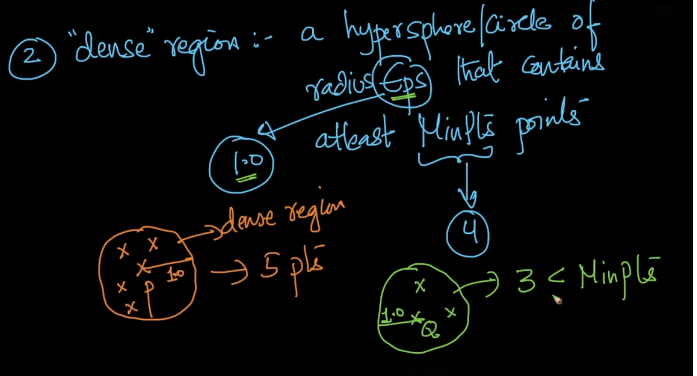 ② "dense" region :- a hypersphere/circle of
radius Eps that contains
atleast MinPts points
1.0
4
dense region
x x x x x
1.0
P
→ 5 pts
x x x
1.0
Q
→ 3 < MinPts